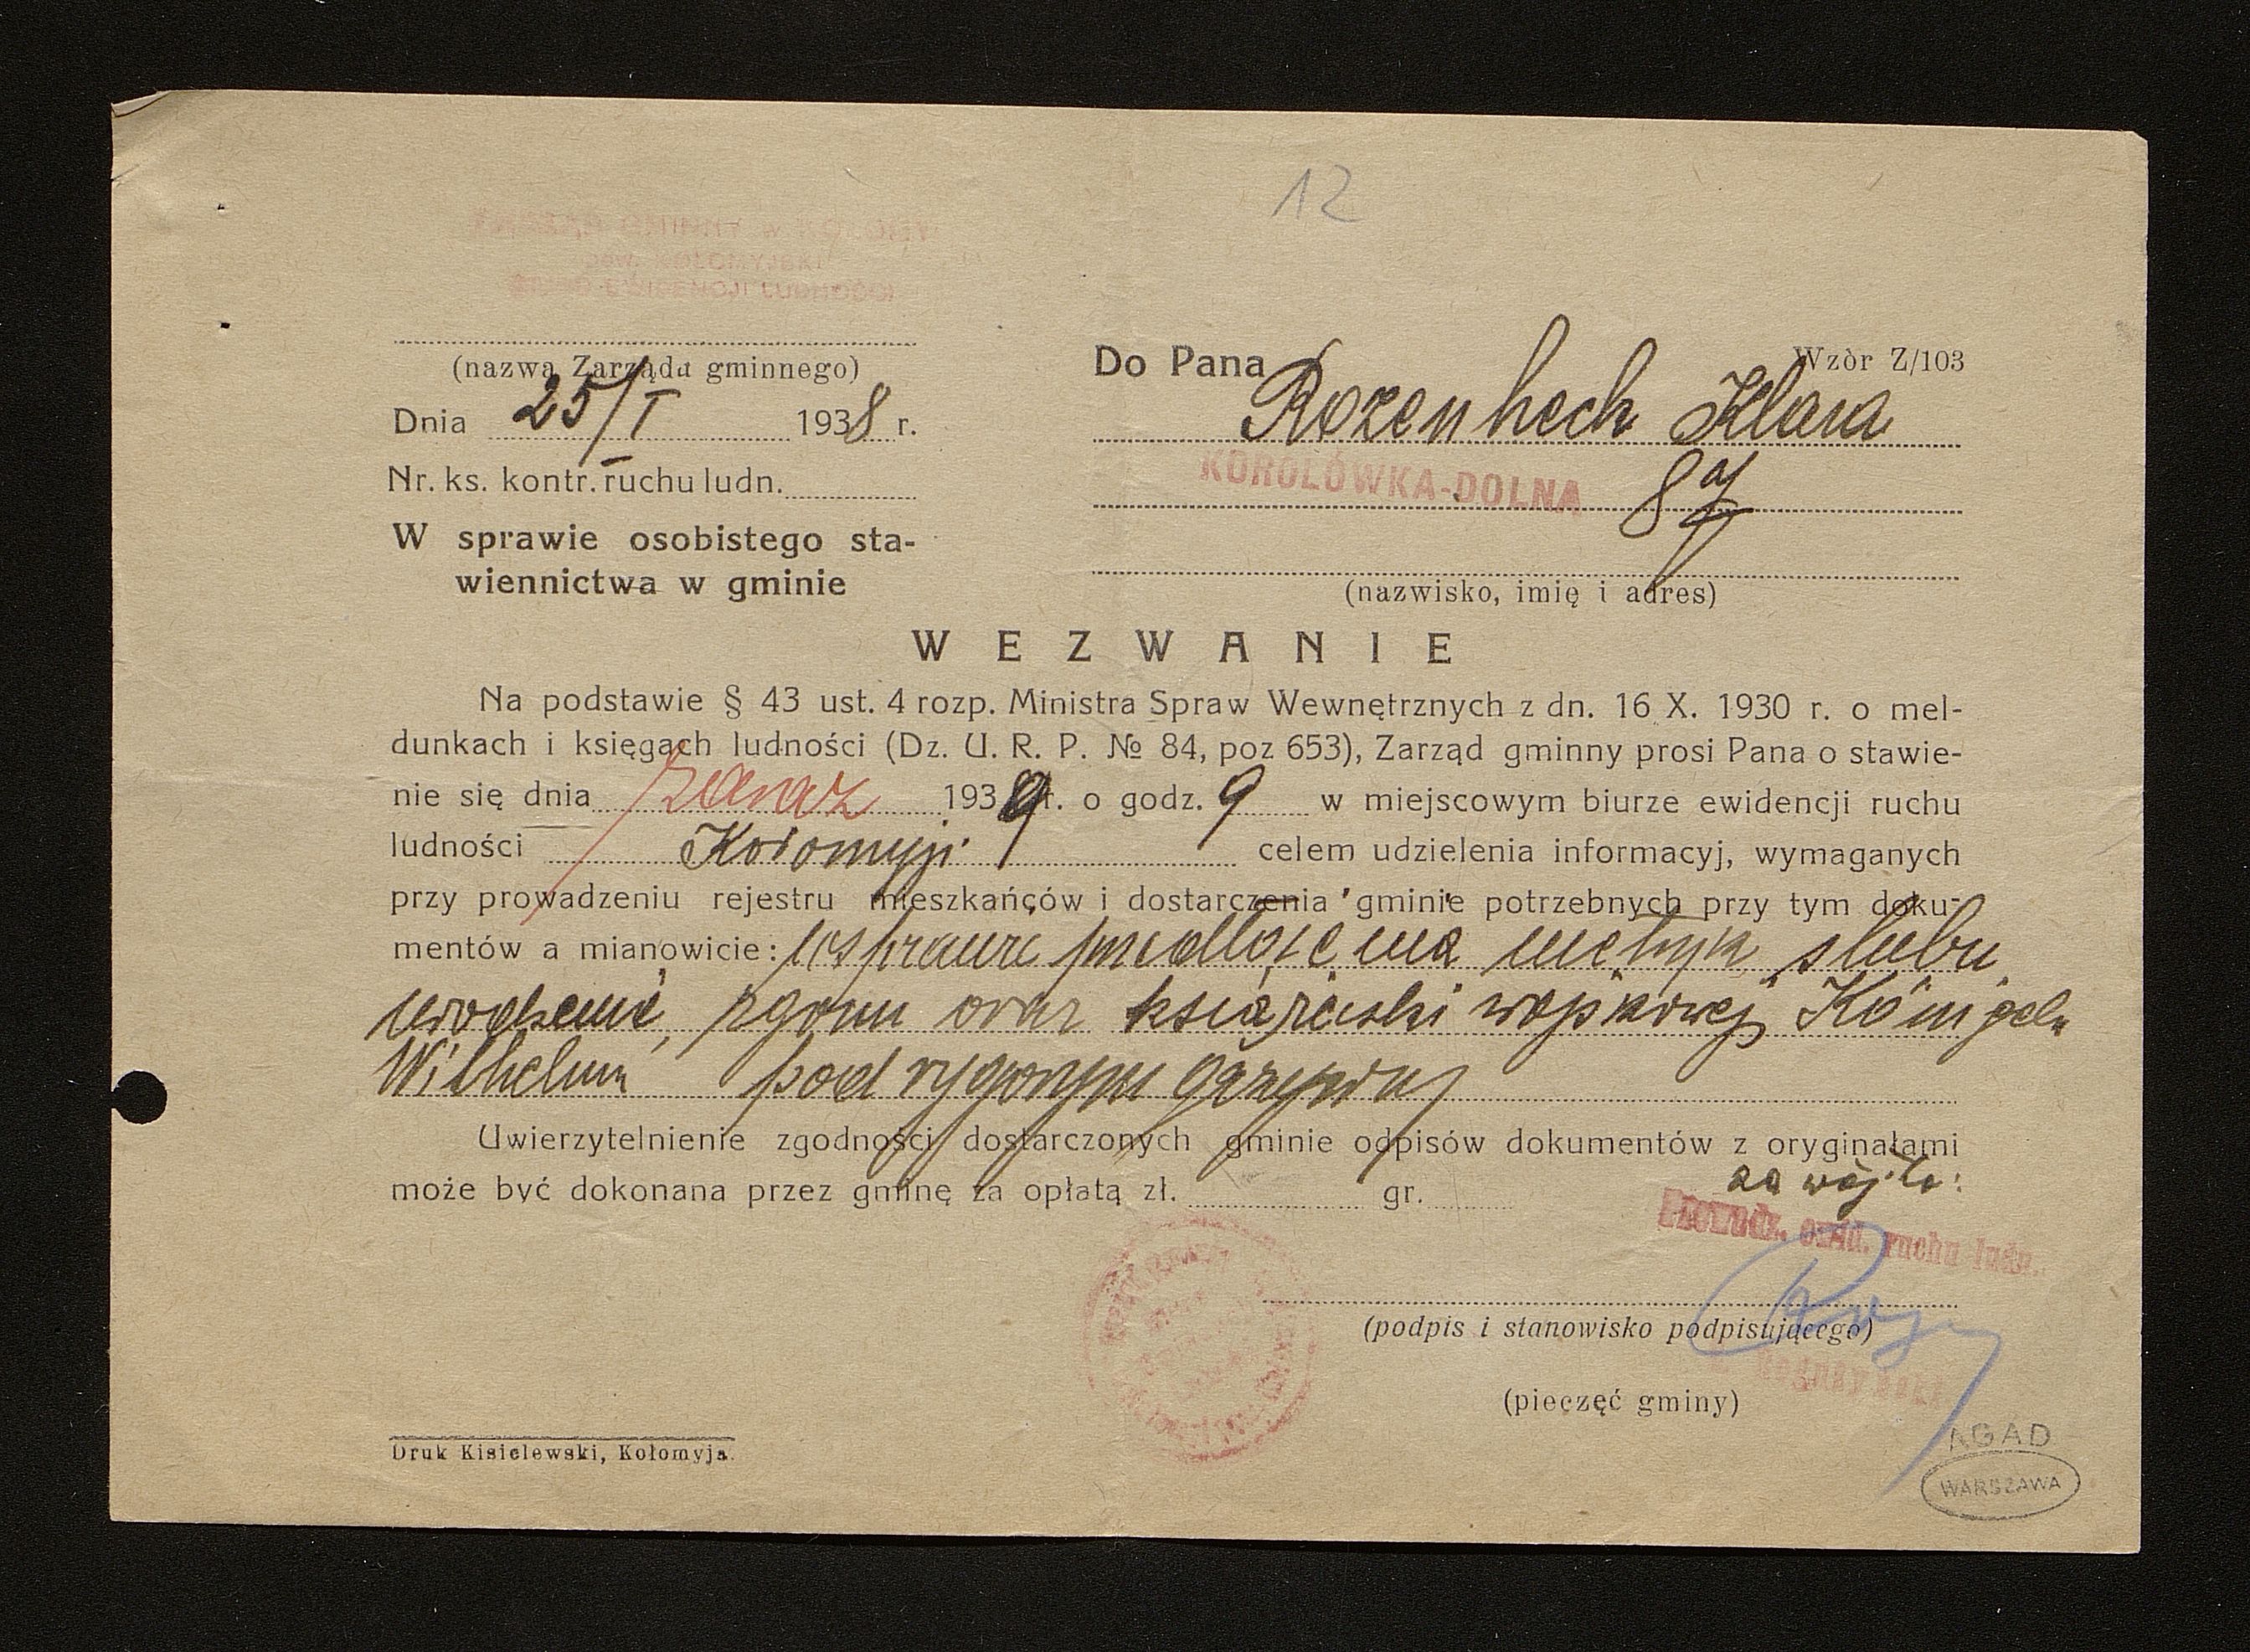 12
ZARZĄD GMINNY w KOŁOMYI
pow. KOŁOMYJSKI
BIURO EWIDENCJI LUDNOŚCI
(nazwa Zarządu gminnego)
Dnia 25/I 1938 r.
Nr. ks. kontr. ruchu ludn.
W sprawie osobistego sta-
wiennictwa w gminie
Wzòr Z/103
Do Pana
Rozenheck Klara
KOROLÓWKA-DOLNA 87
(nazwisko, imię i adres)
WEZWANIE
Na podstawie § 43 ust. 4 rozp. Ministra Spraw Wewnętrznych z dn. 16 X. 1930 r. o mel-
dunkach i księgach ludności (Dz. U. R. P. № 84, poz 653), Zarząd gminny prosi Pana o stawie-
nie się dnia zaraz 1939 r. o godz. 9 w miejscowym biurze ewidencji ruchu
ludności Kołomyji celem udzielenia informacyj, wymaganych
przy prowadzeniu rejestru mieszkańców i dostarczenia gminie potrzebnych przy tym doku-
mentów a mianowicie: w sprawie przedłożenia metryk ślubu
urodzenia, zgonu oraz książeczki wojskowej Königela
Wilhelma pod rygorem grzywny
Uwierzytelnienie zgodności dostarczonych gminie odpisów dokumentów z oryginałami
może być dokonana przez gminę za opłatą zł. gr.
za wójta:
Prowadz. ewid. ruchu ludn.
(podpis i stanowisko podpisującego)
(pieczęć gminy)
Druk Kisielewski, Kołomyja.
AGAD
WARSZAWA